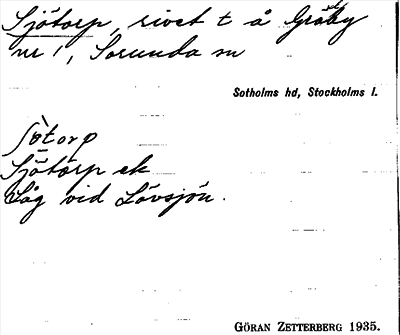 Sjötorp, rivet t å Gröby
nr 1, Sorunda sn
Sotholms hd, Stockholms l.
Sjötorp ek
Låg vid Lövsjön.
GÖRAN ZETTERBERG 1935.